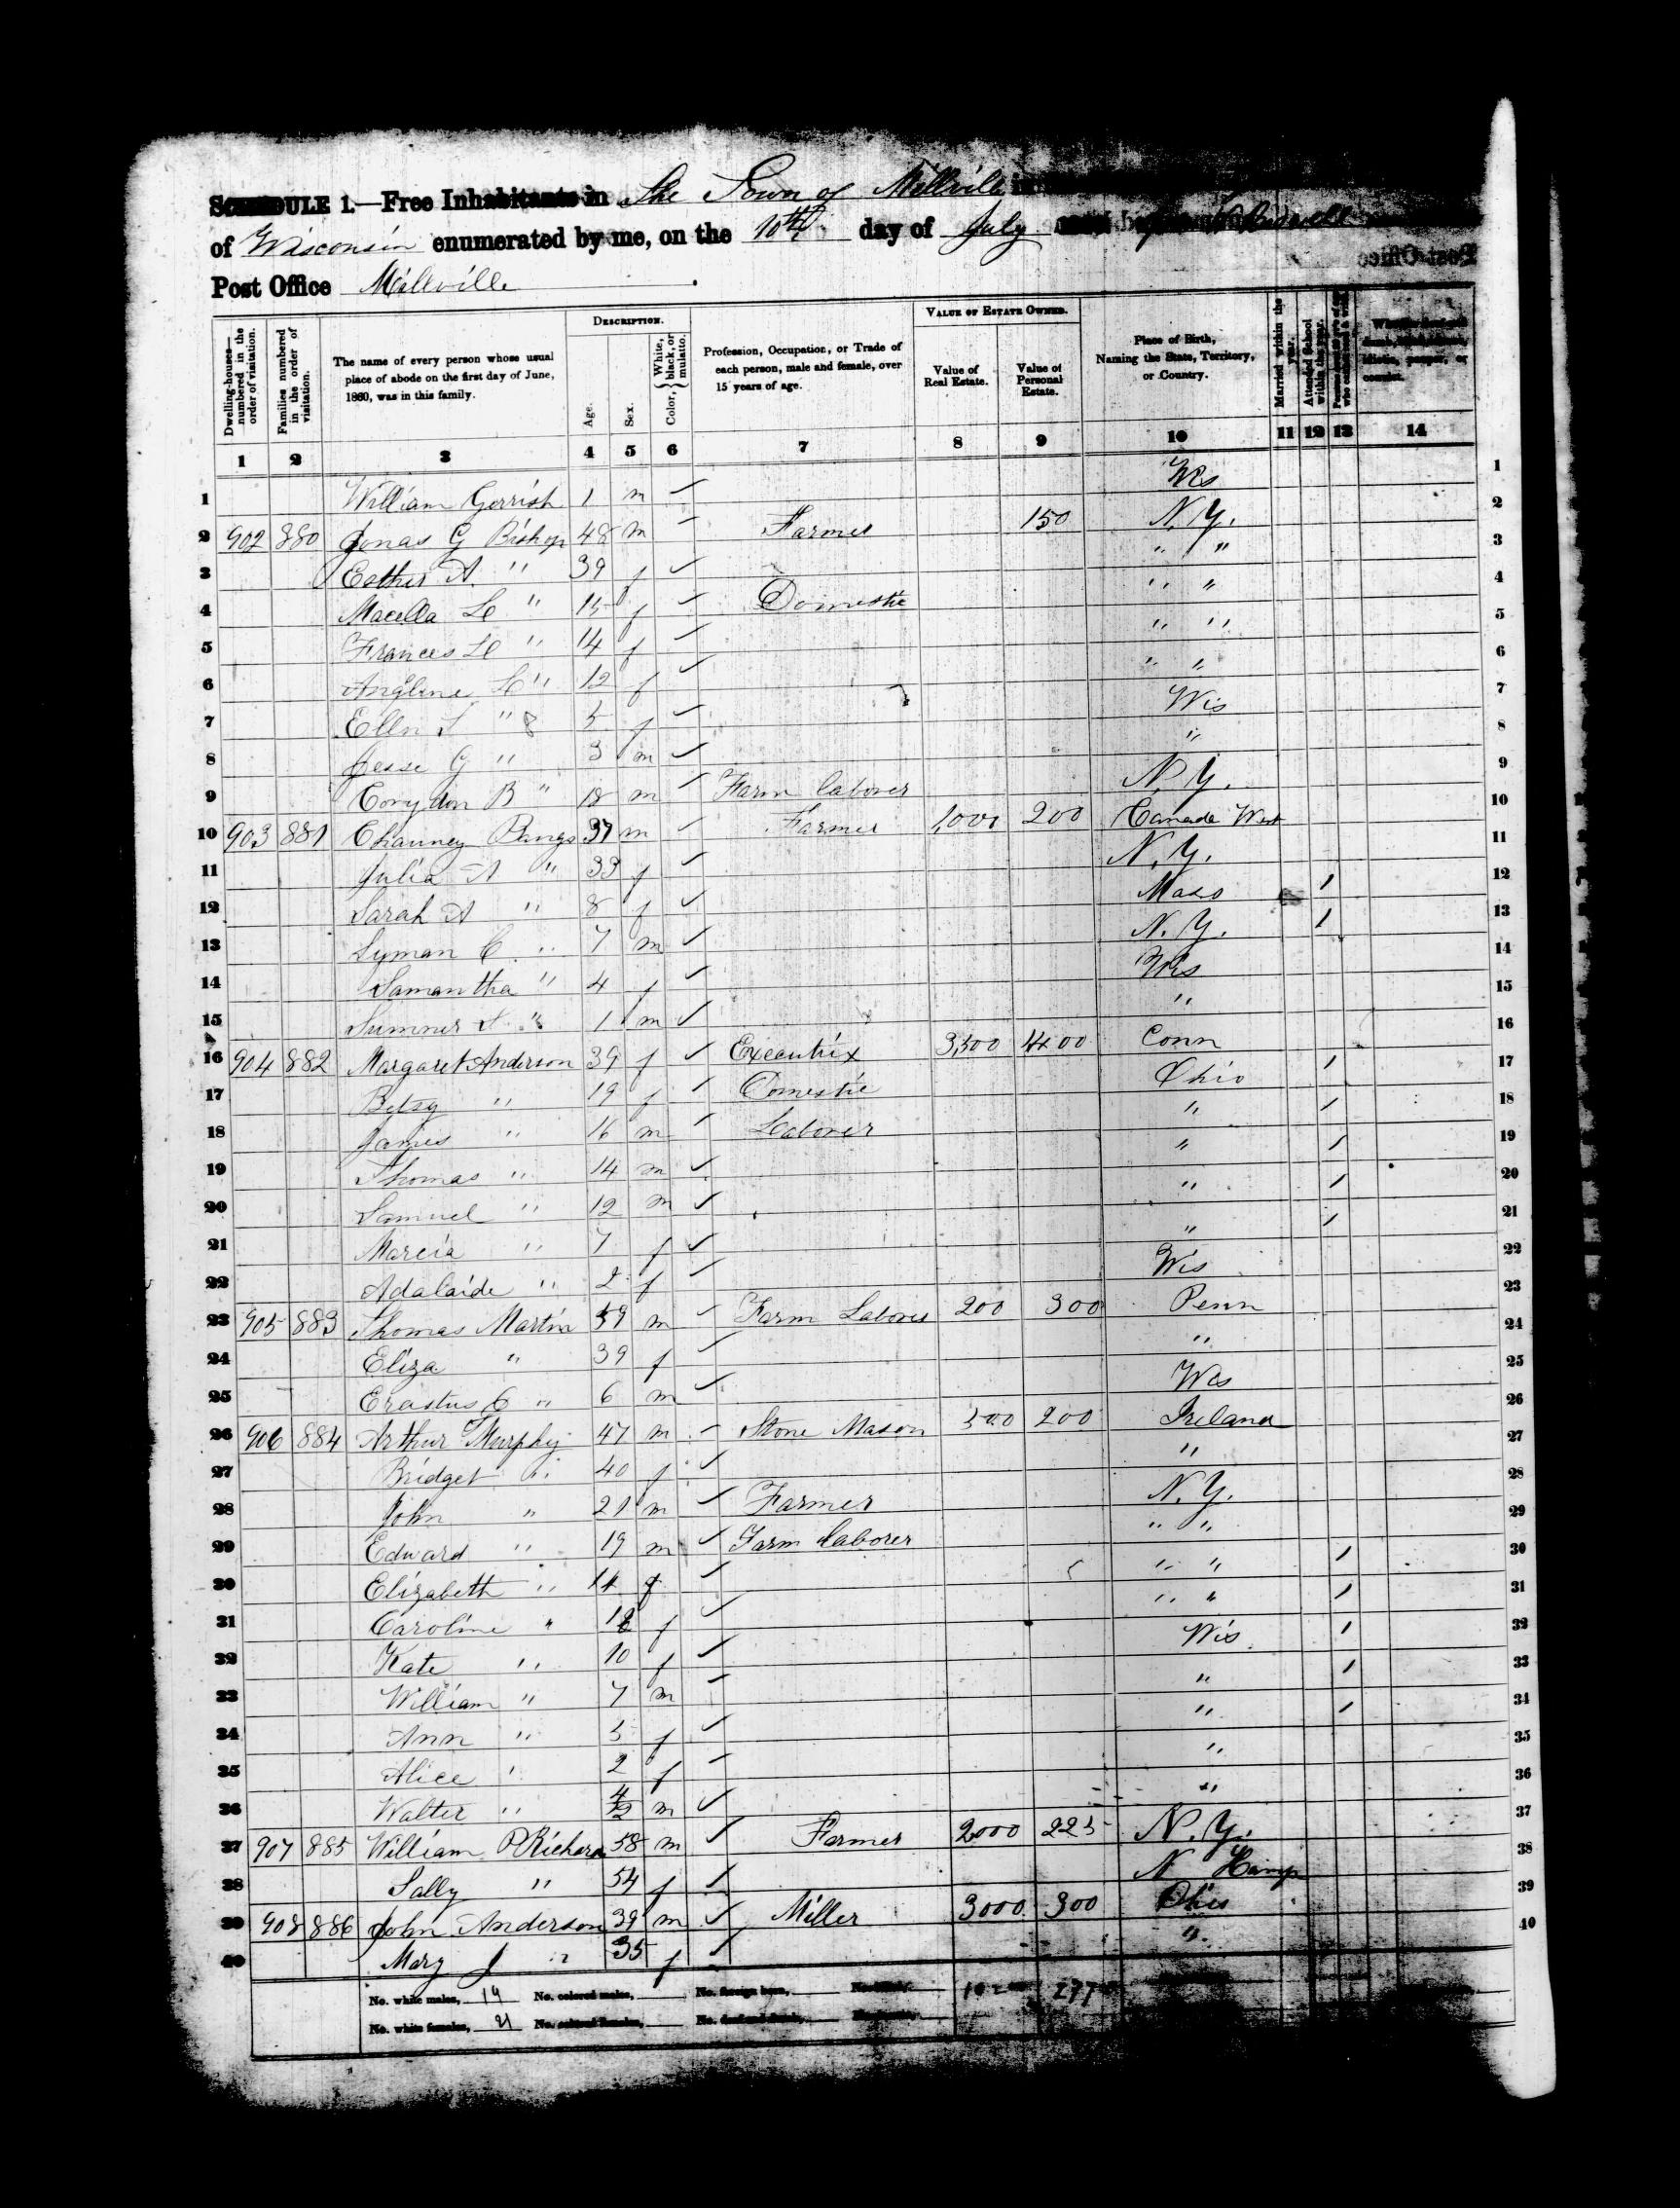 SCHEDULE 1.—Free Inhabitants in The Town of Millville
of Wisconsin enumerated by me, on the 10th day of July
Post Office Millville
Post Office
Dwelling-houses—numbered in the order of visitation.
Families numbered in the order of visitation.
The name of every person whose usual place of abode on the first day of June, 1860, was in this family.
DESCRIPTION.
Age.
Sex.
Color, { White, black, or mulatto.
Profession, Occupation, or Trade of each person, male and female, over 15 years of age.
VALUE OF ESTATE OWNED.
Value of Real Estate.
Value of Personal Estate.
Place of Birth, Naming the State, Territory, or Country.
Married within the year.
Attended School within the year.
1 2 3 4 5 6 7 8 9 10 11 12 13 14
1 William Gerrish 1 m ✓ Wis 1
2 902 880 Jonas G Bishop 48 m ✓ Farmer 150 N.Y. 2
3 Esther A. " 39 f ✓ " " 3
4 Macella L " 15 f ✓ Domestic " " 4
5 Frances L " 14 f ✓ " " 5
6 Angline L " 12 f ✓ " " 6
7 Ellen S " 5 f ✓ Wis 7
8 Jesse G " 3 m ✓ " 8
9 Corydon B " 18 m ✓ Farm laborer N.Y. 9
10 903 881 Chauncy Bangs 37 m ✓ Farmer 1,000 200 Canada West 10
11 Julia A " 33 f ✓ N.Y. 11
12 Sarah A " 8 f ✓ Mass / 12
13 Lyman C. " 7 m ✓ N.Y. / 13
14 Samantha " 4 f ✓ Wis 14
15 Sumner " 1 m ✓ " 15
16 904 882 Margaret Anderson 39 f ✓ Executrix 3,500 400 Conn 16
17 Betsy " 19 f ✓ Domestic Ohio / 17
18 James " 16 m ✓ Laborer " / 18
19 Thomas " 14 m ✓ " / 19
20 Samuel " 12 m ✓ " / 20
21 Marcia " 7 f ✓ " / 21
22 Adalaide " 2 f ✓ Wis 22
23 905 883 Thomas Martin 59 m ✓ Farm Laborer 200 300 Penn 23
24 Eliza " 39 f ✓ " 24
25 Erastus C " 6 m ✓ Wis 25
26 906 884 Arthur Murphy 47 m ✓ Stone Mason 500 200 Ireland 26
27 Bridget " 40 f ✓ " 27
28 John " 21 m ✓ Farmer N.Y. 28
29 Edward " 19 m ✓ Farm laborer " " 29
30 Elizabeth " 14 f ✓ " " / 30
31 Caroline " 12 f ✓ " " / 31
32 Kate " 10 f ✓ Wis / 32
33 William " 7 m ✓ " / 33
34 Ann " 5 f ✓ " / 34
35 Alice " 2 f ✓ " 35
36 Walter " 4/12 m ✓ " 36
37 907 885 William P Richard 58 m ✓ Farmer 2000 225 N.Y. 37
38 Sally " 54 f ✓ N Hamp 38
39 908 886 John Anderson 39 m ✓ Miller 3000 300 Ohio 39
40 Mary J " 35 f ✓ " 40
No. white males, 19 No. colored males, No. foreign born,
No. white females, 21 No. colored females, No. deaf and dumb,